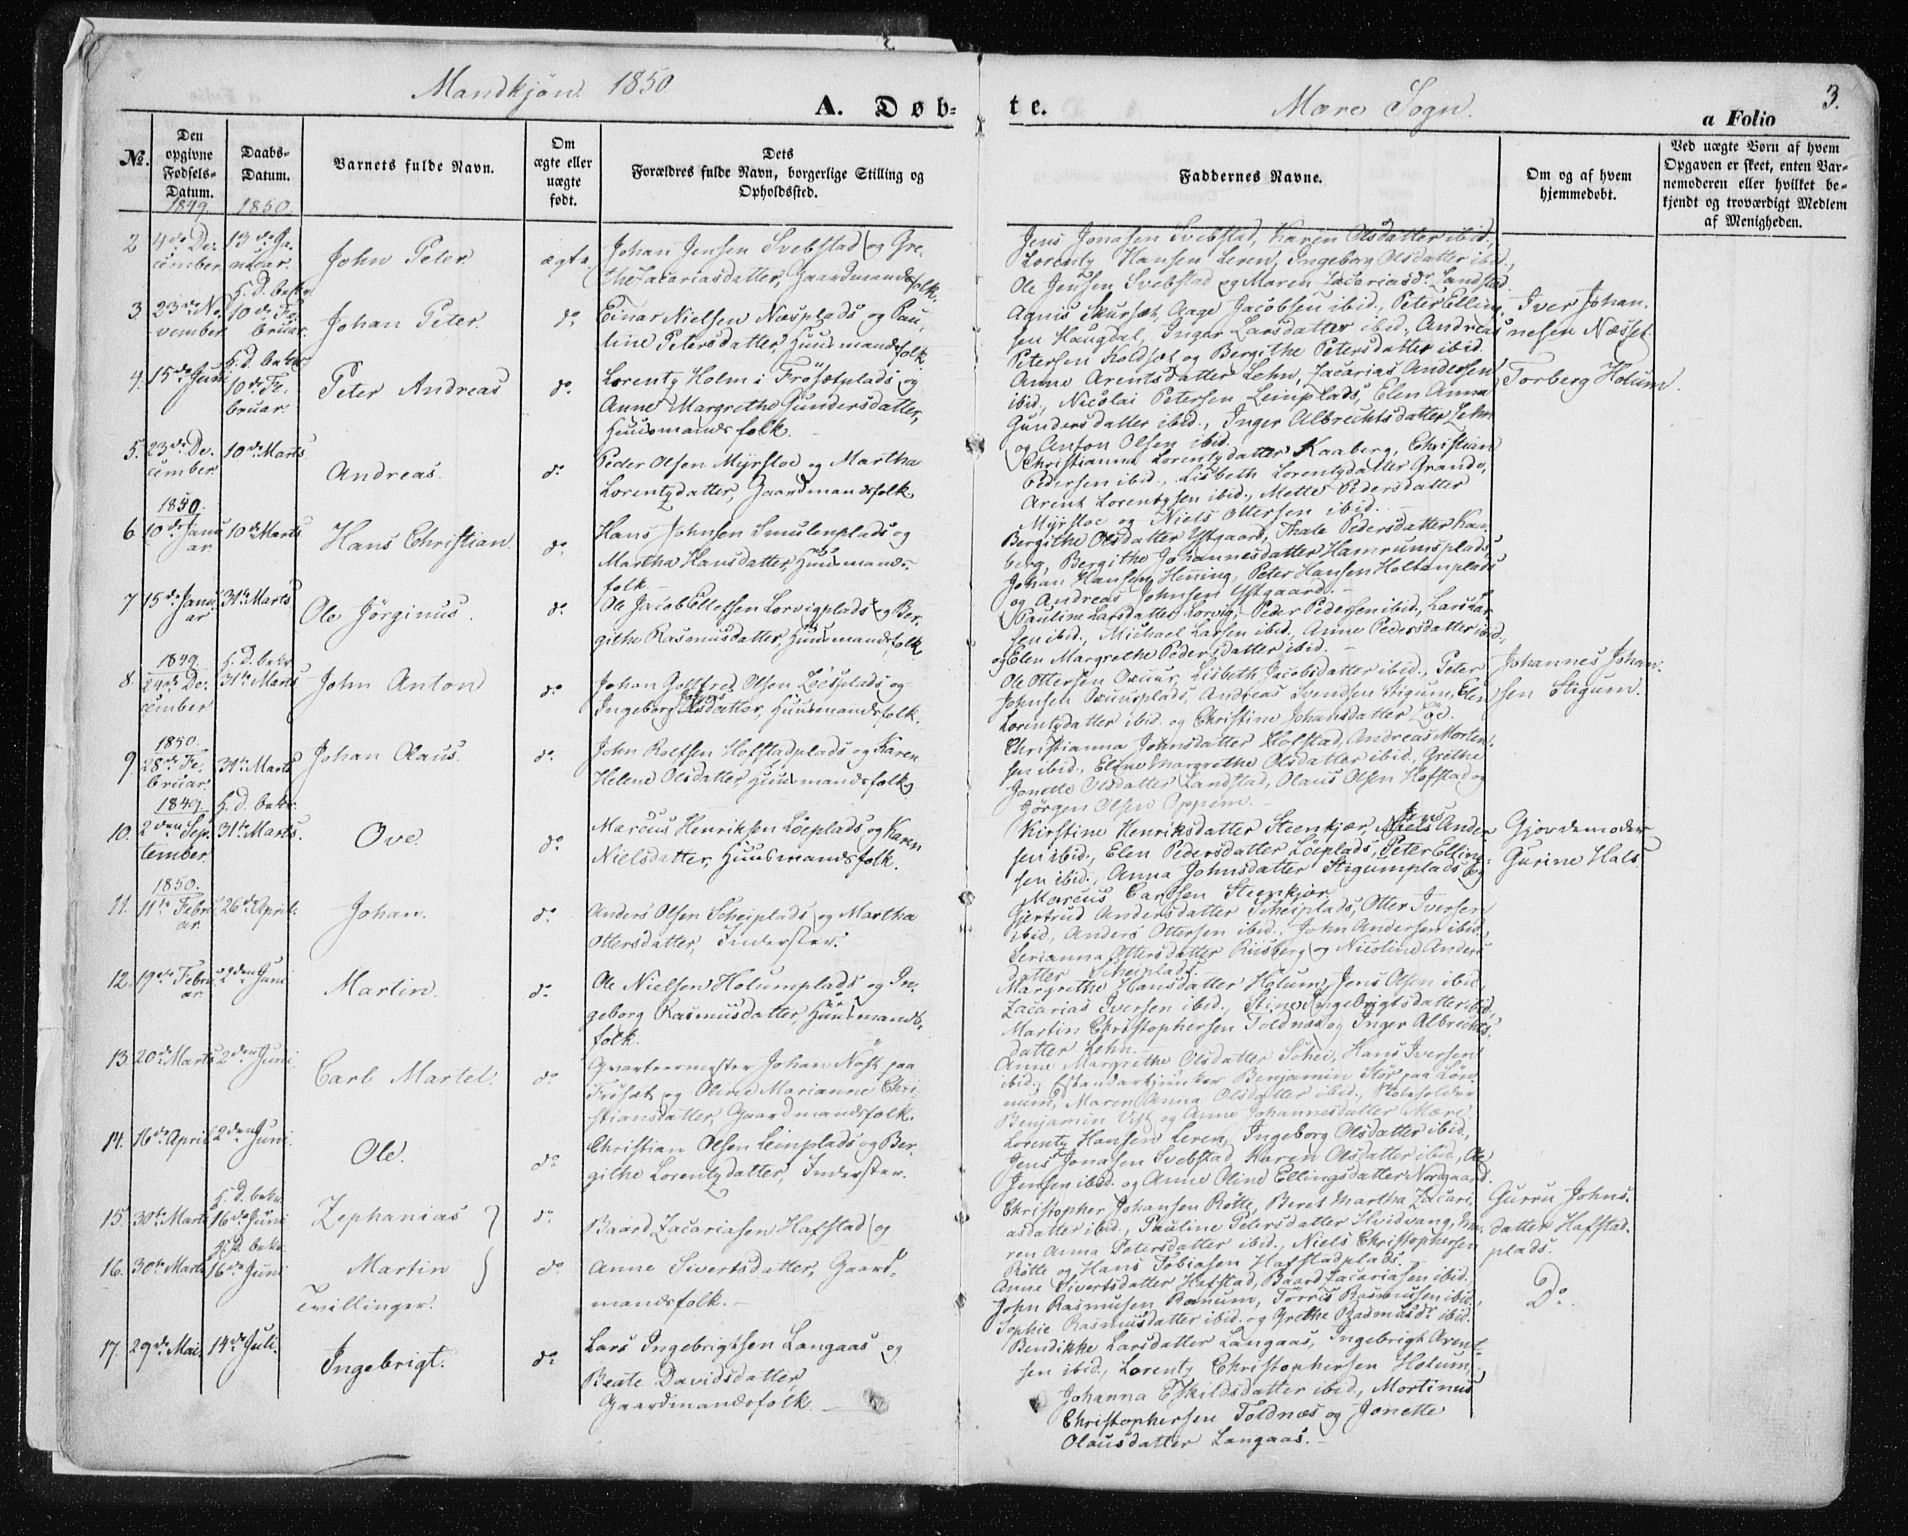 Mandkjøn 1850
A. Døb-
te.
Mære Sogn.
3.
a Folio
No.
Den opgivne Fødsels-Datum.
Daabs-Datum.
Barnets fulde Navn.
Om ægte eller uægte født.
Dets Forældres fulde Navn, borgerlige Stilling og Opholdssted.
Faddernes Navne.
Om og af hvem hjemmedøbt.
Ved uægte Børn af hvem Opgaven er skeet, enten Barnemoderen eller hvilket bekjendt og troværdigt Medlem af Menigheden.
1849
1850
2
4de De-
cember
13de Ja-
nuar.
John Peter
ægte
Johan Jensen Svebstad og Gre-
the Zacariasdatter, Gaardmandsfolk.
Jens Jonasen Svebstad, Karen Olsdatter ibid.,
Lorentz Hansen Leren, Ingeborg Olsdatter ibid.,
Ole Jensen Svebstad og Maren Zacariasdr Landstad
3.
23de No-
vember
H. D. bekr.
10de Fe-
bruar.
Johan Peter.
do
Einar Nielsen Næsplads og Pau-
line Petersdatter, Huusmandsfolk
Agnis Skursæt, Aage Jacobsen ibid., Peter Elling-
sen Haugdal, Inger Larsdatter ibid., Andreas
Petersen Koldsæt og Bergithe Petersdatter ibid.
Iver Johan-
nesen Næsset.
4.
15de Juni
H. D. bekr.
10de Fe-
bruar.
Peter Andreas
do
Lorentz Holm i Frösætplads og
Anne Margrethe Gundersdatter,
Huusmandsfolk.
Anne Arentsdatter Lehn, Zacarias Andersen
ibid., Nicolai Petersen Leinplads, Elen Anna
Gundersdatter ibid., Inger Albrechtsdatter Lehn
og Anton Olsen ibid.
Torberg Holum.
5.
23de De-
cember
10de Marts
Andreas.
do
Peder Olsen Myrstoe og Martha
Lorentzdatter, Gaardmandsfolk
Christianna Lorentzdatter Kaaberg, Christian
Pedersen ibid., Lisbeth Lorentzdatter Grande,
Arent Lorentzsen ibid., Mette Pedersdatter
Myrstoe og Niels Ottersen ibid.
1850.
6
10de Janu-
ar
10de Marts
Hans Christian.
do
Hans Johnsen Smulenplads og
Martha Hansdatter, Huusmands-
folk
Bergithe Olsdatter Ystgaard, Thale Pedersdatter Kaa-
berg, Bergithe Johannesdatter Hamrumsplads,
Johan Hansen Hening, Peter Hansen Holtanplads
og Andreas Johnsen Ystgaard.
7
15de Janu-
ar
31te Marts
Ole Jörginus.
do
Ole Jacob Ellefsen Lorvigplads og Ber-
githe Rasmusdatter, Huusmandsfolk
Pauline Larsdatter Lorvig, Peder Pedersen ibid., Lars
sen ibid., Michael Larsen ibid., Anne Pedersdatter ibid.,
og Elen Margrethe Pedersdatter ibid.
1849.
8.
29de De-
cember
H. D. bekr.
31te Marts
John Anton
do
Johan Gottfred Olsen Löeplads og
Ingeborg Johnsdatter, Huusmandsfolk.
Ole Ottersen Oxuur, Lisbeth Jacobsdatter ibid., Peter
Johnsen Oxuurplads, Andreas Svendsen Stigum, Elen
Lorentzdatter ibid. og Christine Johansdatter Löe.
Johannes Johan-
sen Stigum.
1850.
9
28de Fe-
bruar.
31te Marts
Johan Olaus.
do.
John Rolfsen Hofstadplads og Karen
Helene Olsdatter, Huusmandsfolk
Christianna Johnsdatter Hofstad, Andreas Morten-
sen ibid., Elene Margrethe Olsdatter ibid., Grethe
Jonette Olsdatter Landstad, Olaus Olsen Hofstad og
Jörgen Olsen Oppem.
1849.
10.
2den Sep-
tember
H. D. bekr.
31te Marts.
Ove.
do
Marcus Henriksen Löeplads og Karen
Nielsdatter, Huusmandsfolk.
Kirstine Henriksdatter Steenkjær, Jens Ander-
sen ibid., Elen Pedersdatter Löeplads, Peter Elling-
sen ibid., Anna Johnsdatter Stigumplads og
Marcus Carlsen Steenkjær
Gjordemoder
Gurine Hals
1850.
11.
11te Febru-
ar.
26de April.
Johan.
do
Anders Olsen Scheiplads og Martha
Ottersdatter, Inderster.
Gjertrud Andersdatter Scheiplads, Otter Iversen
ibid., Anders Ottersen ibid., John Andersen ibid.,
Serianna Ottersdatter Riisberg og Nicoline Anders-
datter Scheiplads.
12.
19de Febru-
ar
2den Juni
Martin.
do
Ole Nielsen Holumplads og In-
geborg Rasmusdatter, Huusmands-
folk.
Margrethe Hansdatter Holum, Jens Olsen ibid.,
Zacarias Iversen ibid., Stine Ingebrigtsdatter ibid.,
Martin Christophersen Toldnæs og Inger Albrechts-
datter Lehn.
13.
20de Marts
2den Juni
Carl Martel.
do
Qvarteermester Johan Nöst paa
Frösæt og Oline Marianne Chri-
stiansdatter, Gaardmandsfolk.
Anne Margrethe Olsdatter Schei, Hans Iversen
ibid., Estandartjunker Benjamin Stör paa Lön-
num, Maren Anna Olsdatter ibid., Skoleholder
Benjamin Vist og Anne Johannesdatter Mære
14.
16de April
2den Juni.
Ole.
do
Christian Olsen Leinplads og Ber-
githe Lorentzdatter, Inderster.
Lorentz Hansen Leren, Ingeborg Olsdatter ibid.,
Jens Jonasen Svebstad, Karen Olsdatter ibid., Ole
Jensen ibid. og Anne Oline Ellingsdatter Norgaard.
15.
30te Marts
H. D. bekr.
16de Juni
Zephanias
do
Baard Zacariasen Hafstad og
Christopher Johansen Rötte, Beret Martha Zacari-
asdatter ibid., Pauline Petersdatter Hvidvang, Ma-
ren Anna Petersdatter ibid., Niels Christophersen
Rötte og Hans Tobiasen Hafstadplads.
Gurru Johns-
datter Hafstad-
plads.
16.
30te Marts
H. D. bekr.
16de Juni
Martin
Tvillinger.
do
Anne Sivertsdatter, Gaard-
mandsfolk.
Anne Sivertsdatter Hafstad, Baard Zacariasen ibid.,
John Rasmusen Rönum, Törris Rasmusen ibid.,
Sophie Rasmusdatter ibid. og Grethe Rasmusdr ibid.
Do.
17.
29de Mai.
14de Juli.
Ingebrigt.
do
Lars Ingebrigtsen Langaas og
Beate Davidsdatter
Gaardmandsfolk.
Bendikke Larsdatter Langaas, Ingebrigt Arent-
sen ibid., Lorentz Christophersen Holum,
Johanna Eskildsdatter ibid., Mortinus
Christophersen Toldnæs og Jonette
Olausdatter Langaas.